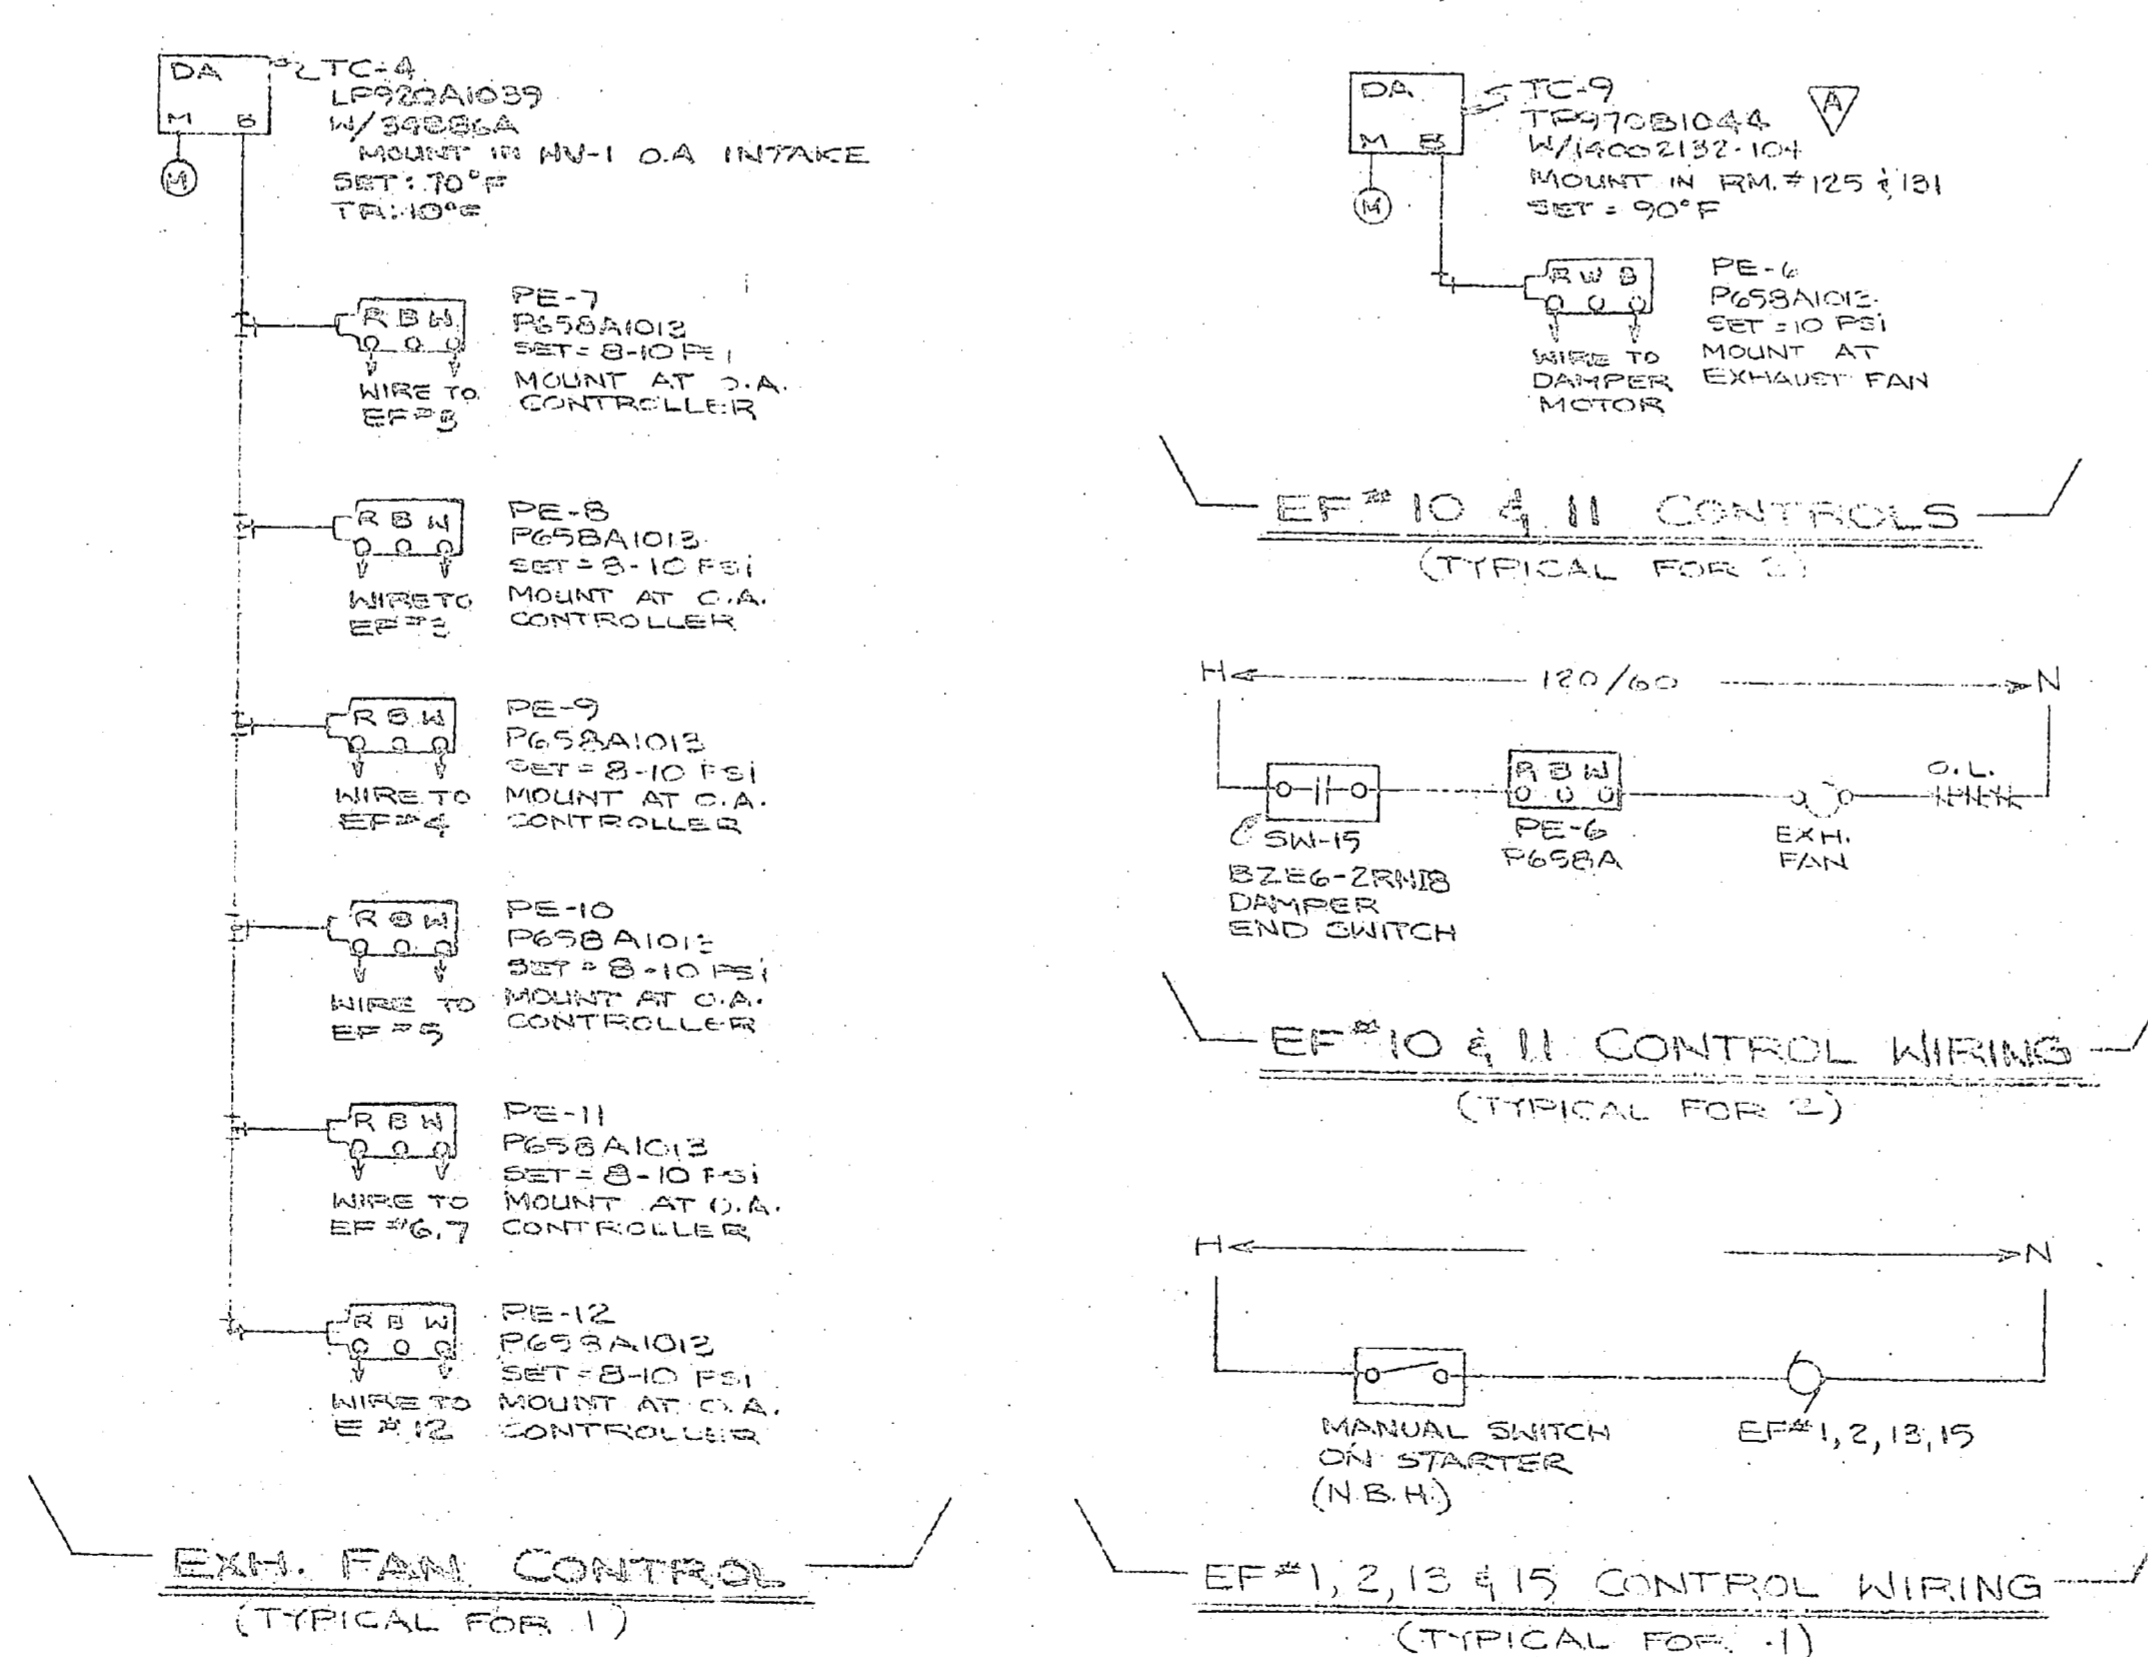 DA
M B
M
TC-4
LP920A1039
W/34886A
MOUNT IN HV-1 O.A INTAKE
SET: 70°F
TR: 10°F
R B W
WIRE TO
PE-7
P658A1013
SET = 8-10 PSI
MOUNT AT O.A.
CONTROLLER
R B W
WIRE TO
PE-8
P658A1013
SET = 8-10 PSI
MOUNT AT O.A.
CONTROLLER
R B W
WIRE TO
EF#4
PE-9
P658A1013
SET = 8-10 PSI
MOUNT AT O.A.
CONTROLLER
R B W
WIRE TO
EF#5
PE-10
P658A1013
SET = 8-10 PSI
MOUNT AT O.A.
CONTROLLER
R B W
WIRE TO
EF#6,7
PE-11
P658A1013
SET = 8-10 PSI
MOUNT AT O.A.
CONTROLLER
R B W
WIRE TO
E #12
PE-12
P658A1013
SET = 8-10 PSI
MOUNT AT O.A.
CONTROLLER
EXH. FAN CONTROL
(TYPICAL FOR 1)
DA
M B
M
TC-9
TP970B1044
W/14002132-104
MOUNT IN RM. #125 & 131
SET = 90°F
A
R W B
WIRE TO
DAMPER
MOTOR
PE-6
P658A1013
SET = 10 PSI
MOUNT AT
EXHAUST FAN
EF#10 & 11 CONTROLS
(TYPICAL FOR 2)
H 120/60 N
R B W
O.L.
SW-15
BZE6-2RN18
DAMPER
END SWITCH
PE-6
P658A
EXH.
FAN
EF#10 & 11 CONTROL WIRING
(TYPICAL FOR 2)
H N
MANUAL SWITCH
ON STARTER
(N.B.H.)
EF#1, 2, 13, 15
EF#1, 2, 13 & 15 CONTROL WIRING
(TYPICAL FOR 1)